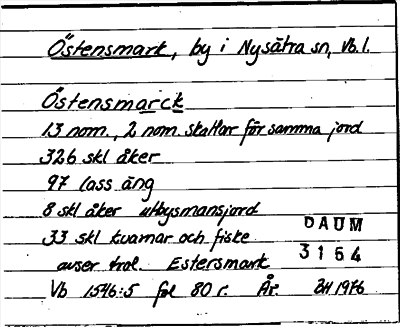 Östensmark, by i Nysätra sn, Vb. l.
Östensmarck
13 nom., 2 nom skattar för samma jord
326 skl åker
97 lass äng
8 skl åker utbysmansjord
33 skl kvarnar och fiske
avser trol. Estersmark
Vb 1546:5 fol 80 r. År. BH 1976
DAUM
3154